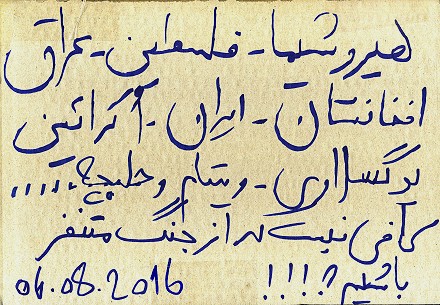 هیروشیما - فلسطین - عراق
افغانستان - ایران - آکرائین
یوگسلاوی - ویتنام و خلیج، ، ، ، ،
کافی نیست که از جنگ متنفر
باشیم؟!!!! 06.08.2016